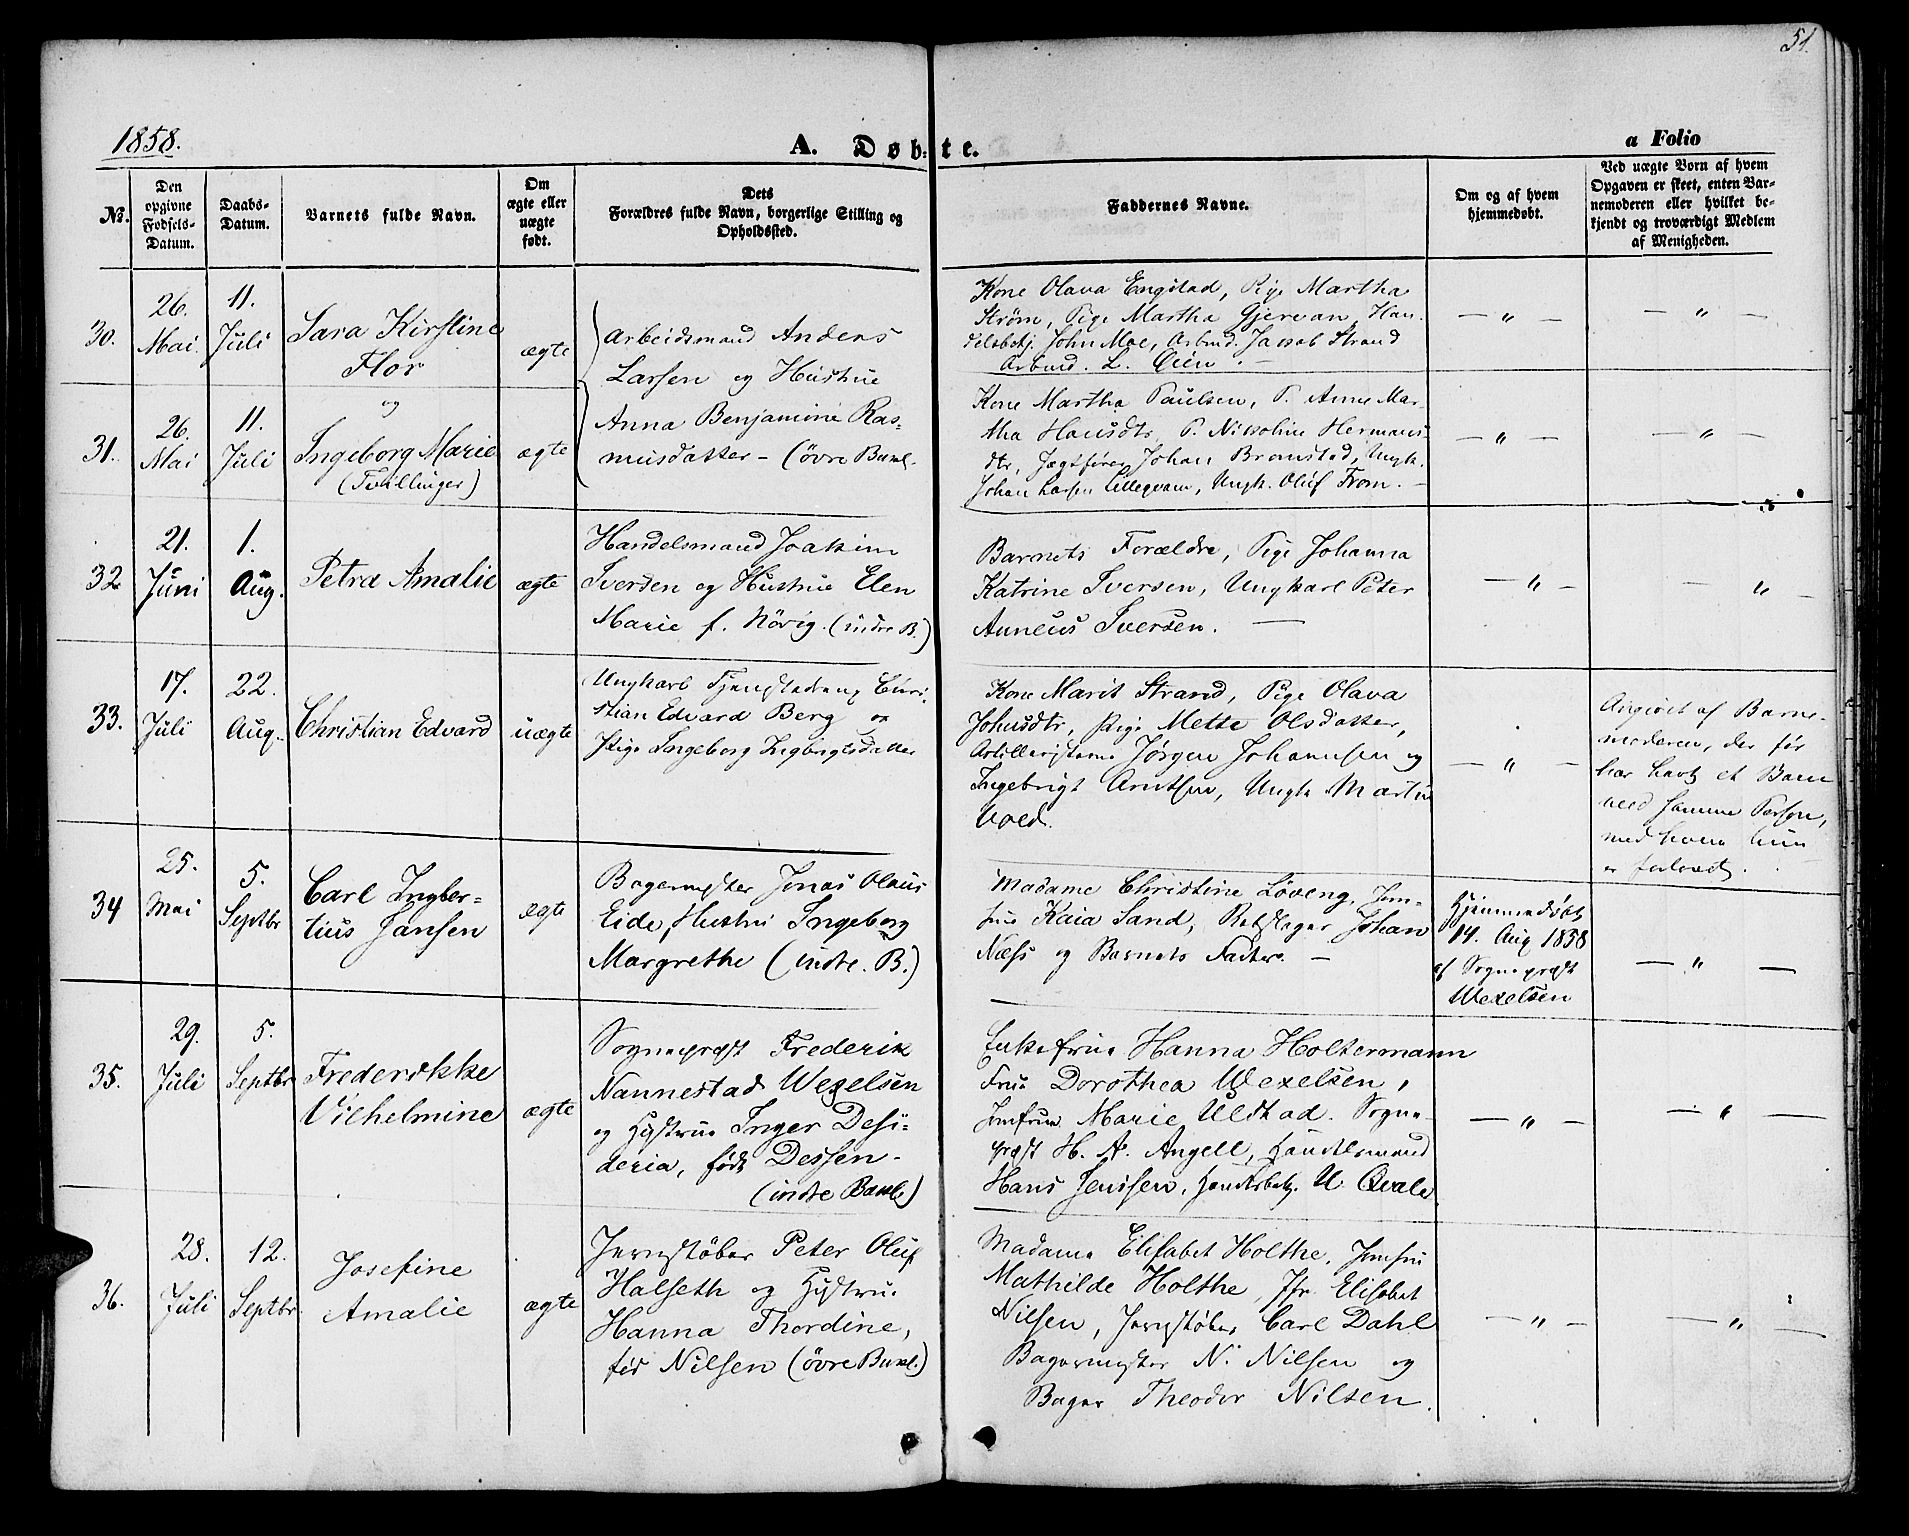 51.
1858.
A. Døbte.
a Folio
No.
Den opgivne Fødsels-Datum.
Daabs-Datum.
Barnets fulde Navn.
Om ægte eller uægte født.
Dets Forældres fulde Navn, borgerlige Stilling og Opholdssted.
Faddernes Navne.
Om og af hvem hjemmedøbt.
Ved uægte Børn af hvem Opgaven er skeet, enten Barnemoderen eller hvilket bekjendt og troværdigt Medlem af Menigheden.
30.
26. Mai.
11. Juli
Sara Kirstine
Flor
og
ægte
Arbeidsmand Anders
Larsen og Hustrue
Anna Benjamine Ras-
musdatter - (övre Bakl.
Kone Olava Engstad, Pige Martha
Strøm, Pige Martha Gjervan, Han-
delsbetj. John Moe, Arbmd. Jacob Strand
Arbmd. L. Öien. -
— " —
— " —
31.
26. Mai
11. Juli
Ingeborg Marie
(Tvillinger)
ægte
Kone Martha Paulsen, P. Anne Mar-
tha Hansdtr, P. Nikoline Hermans-
dtr, Jægtfører Johan Bromstad, Ungk.
Johan Larsen Lillegvam, Ungk. Oluf From. -
— " —
— " —
32
21. Juni
1. Aug.
Petra Amalie
ægte
Handelsmand Joakim
Iversen og Hustrue Elen
Marie f. Nörig. (indre B.)
Barnets Forældre, Pige Johanna
Katrine Iversen, Ungkarl Peter
Anneus Iversen. —
— " —
— " —
33.
17. Juli
22. Aug.
Christian Edvard
uægte
Ungkarl Chri-
stian Edvard Berg og
Pige Ingeborg Ingbrigtsdatter
Kone Marit Strand, Pige Olava
Johnsdtr, Pige Mette Olsdatter,
Artilleristerne Jørgen Johannsen og
Ingebrigt Arntsen, Ungk Martin
Vold.
— " —
Angivet af Barne-
moderen, der før
har havt et Barn
med samme Person,
med hvem hun
er forlovet.
34
25. Mai
5. Septbr
Carl Ingber-
tius Jansen
ægte
Bagermester Jonas Olaus
Eide, Hustru Ingeborg
Margrethe (indre. B.)
Madame Christine Löveng, Jom-
fru Kaia Sand, Rebslager Johan
Næss og Barnets Fader. —
Hjemmedöbt
14. Aug 1858
af Sognepræst
Wexelsen
— " —
35.
29. Juli
5. Septbr
Frederikke
Vilhelmine
ægte
Sognepræst Frederik
Nannestad Wexelsen
og Hustrue Inger Desi-
deria, født Dessen.
(indre Bakl.)
Enkefrue Hanna Holtermann
Frue Dorothea Wexelsen,
Jomfrue Marie Uldstad. Sogne-
præst H. A. Angell, Handelsmand
Hans Jenssen, Handlsbetj. U. Qvale
— " —
— " —
36.
28. Juli
12. Septbr
Josefine
Amalie
ægte
Jernstöber Peter Oluf
Halseth og Hustrue
Hanna Thordine,
föd Nilsen (övre Bakl.)
Madame Elisabet Holthe, Jomfru
Mathilde Holthe, Jfr. Elisabet
Nilsen, Jernstöber Carl Dahl
Bagermester N. Nilsen og
Bager Theodor Nilsen.
— " —
— " —